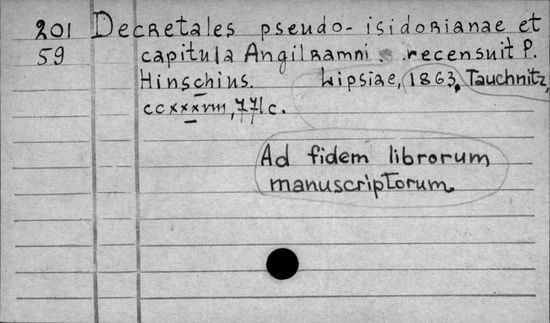 201 Decretales pseudo-isidorianae et
59 capitula Angilramni. recensuit P.
Hinschius. Lipsiae, 1863, Tauchnitz,
ccxxxvııı, 771 c.
Ad fidem librorum
manuscriptorum